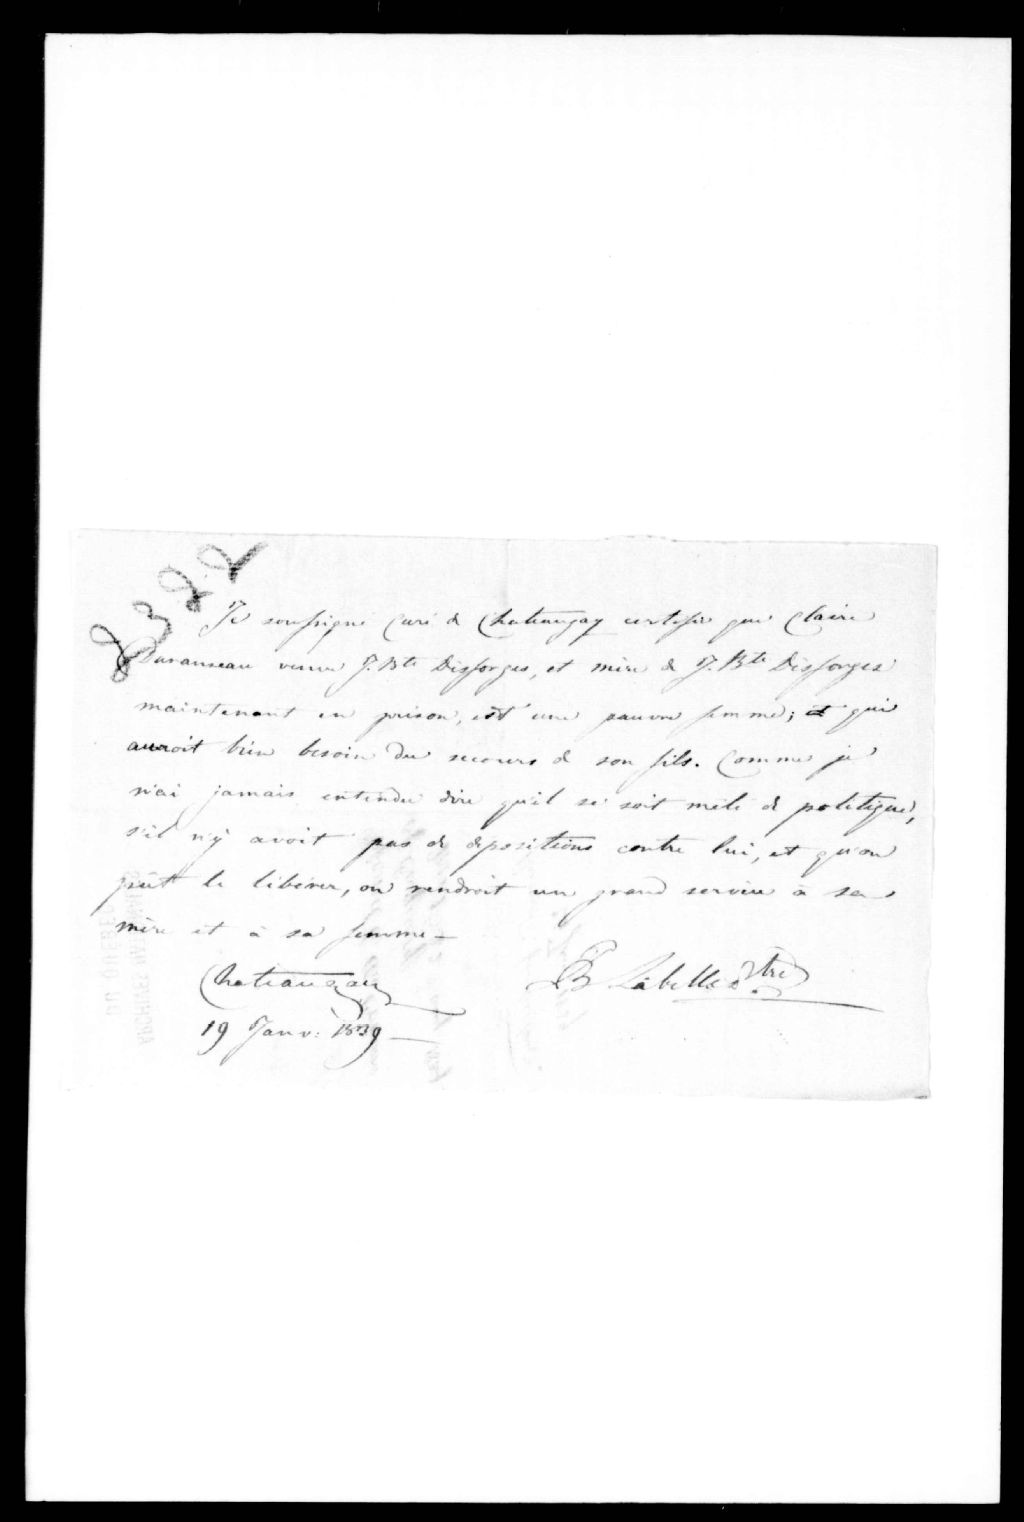 2322
Je soussigné Curé de Chateaugay certifie que Claire
Duranseau veuve J. Bte Desforges, et mère de J. Bte Desforges
maintenant en prison, est une pauvre femme; et qui
auroit bien besoin du secours de son fils. Comme je
n'ai jamais entendu dire qu'il se soit mêlé de politique,
s'il n'y avoit pas de dépositions contre lui, et qu'on
pût le libérer, on rendroit un grand service à sa
mère et à sa femme –
Chateaugay
Labelle Ptre
19 Janv: 1839 –
DU QUÉBEC
ARCHIVES NATIONALES